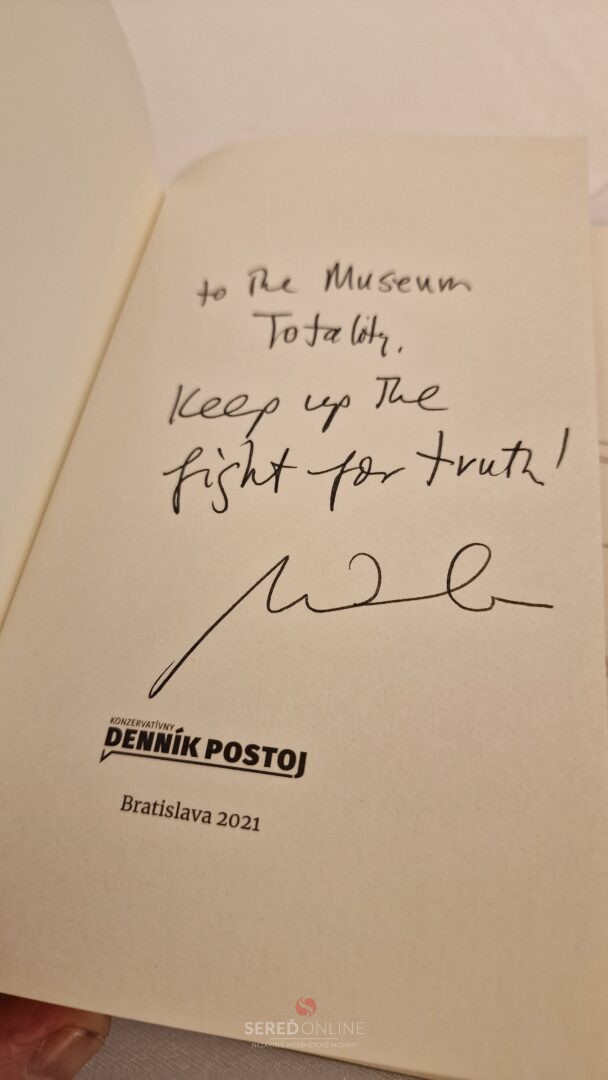 to The Museum
Totality,
Keep up The
fight for truth!
KONZERVATÍVNY
DENNÍK POSTOJ
Bratislava 2021
SEREĎONLINE